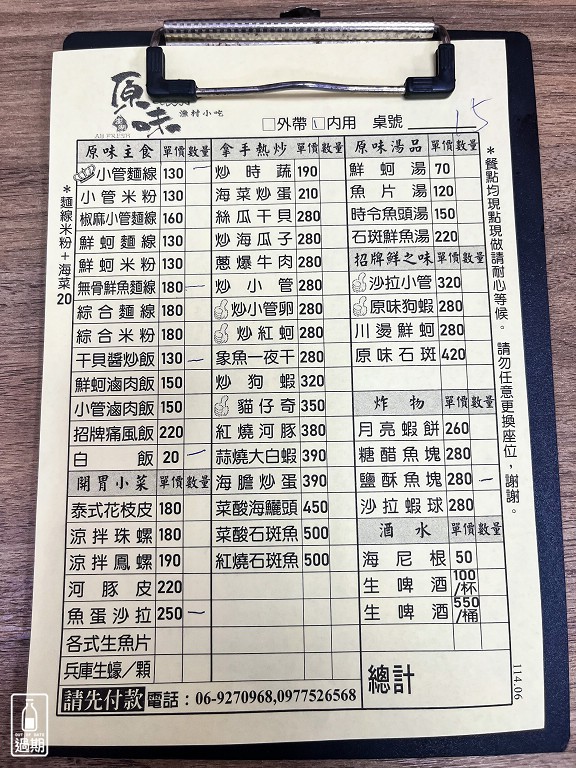 原味
漁村小吃
□外帶 □內用 桌號 15
原味主食 單價 數量
小管麵線 130 一
小管米粉 130
椒麻小管麵線 160
鮮蚵麵線 130
鮮蚵米粉 130
無骨鮮魚麵線 180 一
綜合麵線 180
綜合米粉 180
干貝醬炒飯 130 一
鮮蚵滷肉飯 150
小管滷肉飯 150
招牌痛風飯 220
白飯 20 一
開胃小菜 單價 數量
泰式花枝皮 180
涼拌珠螺 180
涼拌鳳螺 190
河豚皮 220
魚蛋沙拉 250 一
各式生魚片
兵庫生蠔／顆
拿手熱炒 單價 數量
炒時蔬 190
海菜炒蛋 210
絲瓜干貝 280
炒海瓜子 280
蔥爆牛肉 280
炒小管 280
炒小管卵 280
炒紅蚵 280
象魚一夜干 280
炒狗蝦 320
貓仔奇 350
紅燒河豚 380
蒜燒大白蝦 390
海膽炒蛋 390
菜酸海鱺頭 450
菜酸石斑魚 500
紅燒石斑魚 500
原味湯品 單價 數量
鮮蚵湯 70
魚片湯 120
時令魚頭湯 150
石斑鮮魚湯 220
招牌鮮之味 單價 數量
沙拉小管 320
原味狗蝦 280
川燙鮮蚵 280
原味石斑 420
炸物 單價 數量
月亮蝦餅 260
糖醋魚塊 280
鹽酥魚塊 280 一
沙拉蝦球 280
酒水 單價 數量
海尼根 50
生啤酒 100/杯
生啤酒 550/桶
總計
請先付款 電話：06-9270968,0977526568
＊麵線米粉＋海菜20
＊餐點均現點現做請耐心等候。請勿任意更換座位，謝謝。
114.06
過期